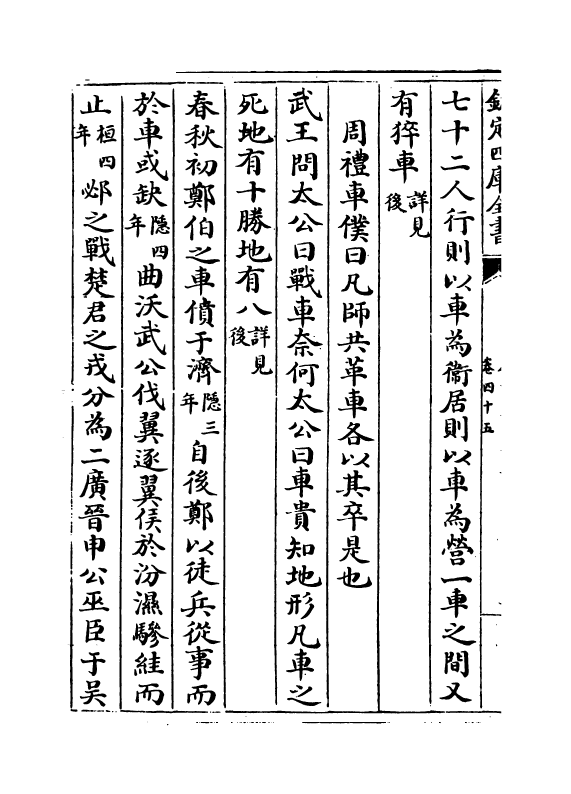 欽定四庫全書
卷四十五
七十二人行則以車為衞居則以車為營一車之間又
有猝車詳見後
周禮車僕曰凡師共革車各以其卒是也
武王問太公曰戰車奈何太公曰車貴知地形凡車之
死地有十勝地有八詳見後
春秋初鄭伯之車僨于濟隱三年自後鄭以徒兵從事而
於車或缺隱四年曲沃武公伐翼逐翼侯於汾濕驂絓而
止桓四年邲之戰楚君之戎分為二廣晉申公巫臣于吴